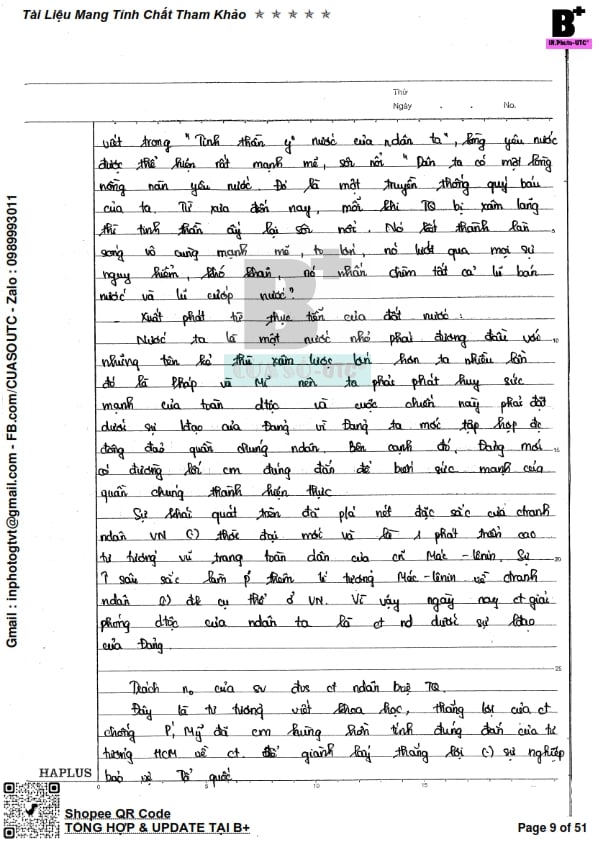 Tài Liệu Mang Tính Chất Tham Khảo ★ ★ ★ ★ ★
B+
IN.Photo-UTC
Thứ
Ngày . . No.
viết trong "Tinh thần y nước của ndân ta", lòng yêu nước
được thể hiện rất mạnh mẽ, sôi nổi "Dân ta có một lòng
nồng nàn yêu nước. Đó là một truyền thống quý báu
của ta. Từ xưa đến nay, mỗi khi TQ bị xâm lăng
thì tinh thần ấy lại sôi nổi. Nó kết thành làn
sóng vô cùng mạnh mẽ, to lớn, nó lướt qua mọi sự
nguy hiểm, khó khăn, nó nhấn chìm tất cả lũ bán
nước và lũ cướp nước".
- Xuất phát từ thực tiễn của đất nước:
Nước ta là một nước nhỏ phải đương đầu với
những tên kẻ thù xâm lược lớn hơn ta nhiều lần
đó là Pháp và Mĩ nên ta phải phát huy sức
mạnh của toàn dtộc và cuộc chiến này phải đặt
dưới sự lđạo của Đảng vì Đảng ta mới tập hợp đc
đông đảo quần chúng ndân. Bên cạnh đó, Đảng mới
có đường lối cm đúng đắn để biến sức mạnh của
quần chúng thành hiện thực
Sự khái quát trên đã p/á nét đặc sắc của ctranh
ndân VN (-) thời đại mới và là 1 phát triển cao
tư tưởng vũ trang toàn dân của cn Mác-Lênin. Sự
sâu sắc làm p' thêm tư tưởng Mác-Lênin về ctranh
ndân (-) đk cụ thể ở VN. Vì vậy ngày nay ct giải
phóng dtộc của ndân ta là ct nd dưới sự lđạo
của Đảng.
Trách n0 của sv đvs ct ndân bvệ TQ.
Đây là tư tưởng viết khoa học, thắng lợi của ct
chống P', Mỹ đã cm hùng hồn tính đúng đắn của tư
tương HCM về ct. Để giành lại thắng lợi (-) sự nghiệp
bảo vệ Tổ quốc
B+
CUA SO-UTC
10
15
20
25
0 5 10 15
HAPLUS
Gmail : inphotogtvt@gmail.com - FB.com/CUASOUTC - Zalo : 0989993011
Shopee QR Code
TỔNG HỢP & UPDATE TẠI B+
Page 9 of 51